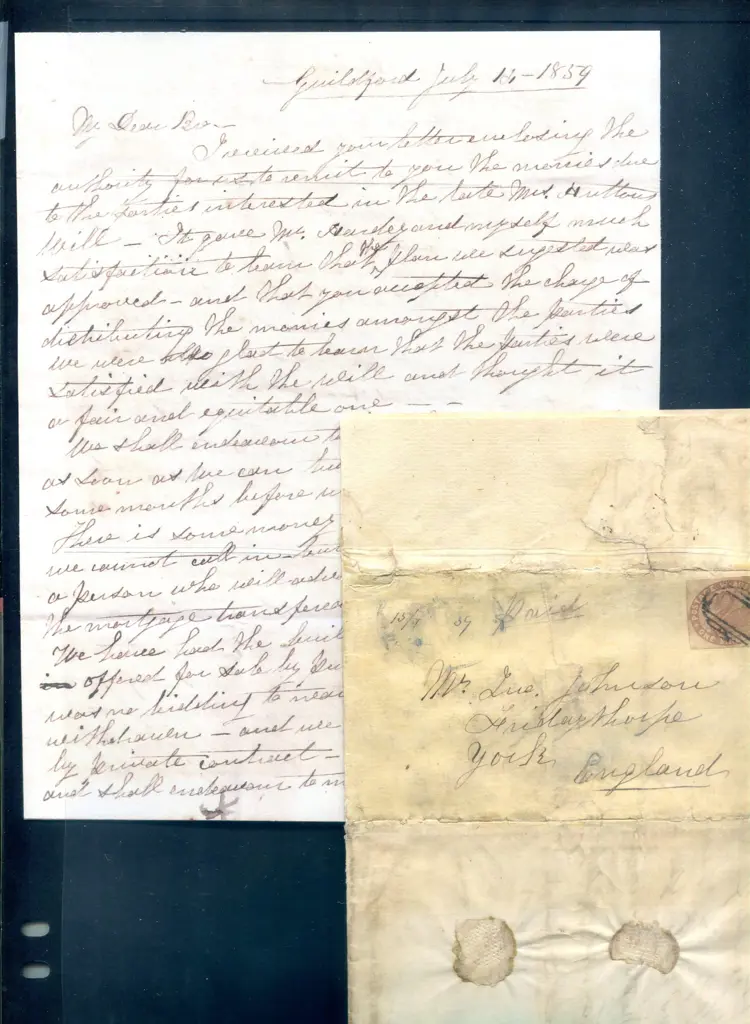 Guildford July 14 - 1859
My Dear Bro -
I received your letter enclosing the
authority for us to remit to you the monies due
to the Parties interested in the late Mrs. Huttons
Will - It gave Mr. Hardey and myself much
satisfaction to learn that the plan we sugested was
approved - and that you accepted the charge of
distributing the monies amongst the Parties
we were also glad to learn that the Parties were
satisfied with the Will and thought it
a fair and equitable one - -
We shall endeavour to
as soon as we can
some months before
There is some money
we cannot call in
a person who will
the mortgage
We have had the
offered for sale by
was no bidding to
withdrawn - and we
by private contract -
and shall endeavour to
15/7 59 Paid
Mr. Jno. Johnson
Fridaythorpe
York
England